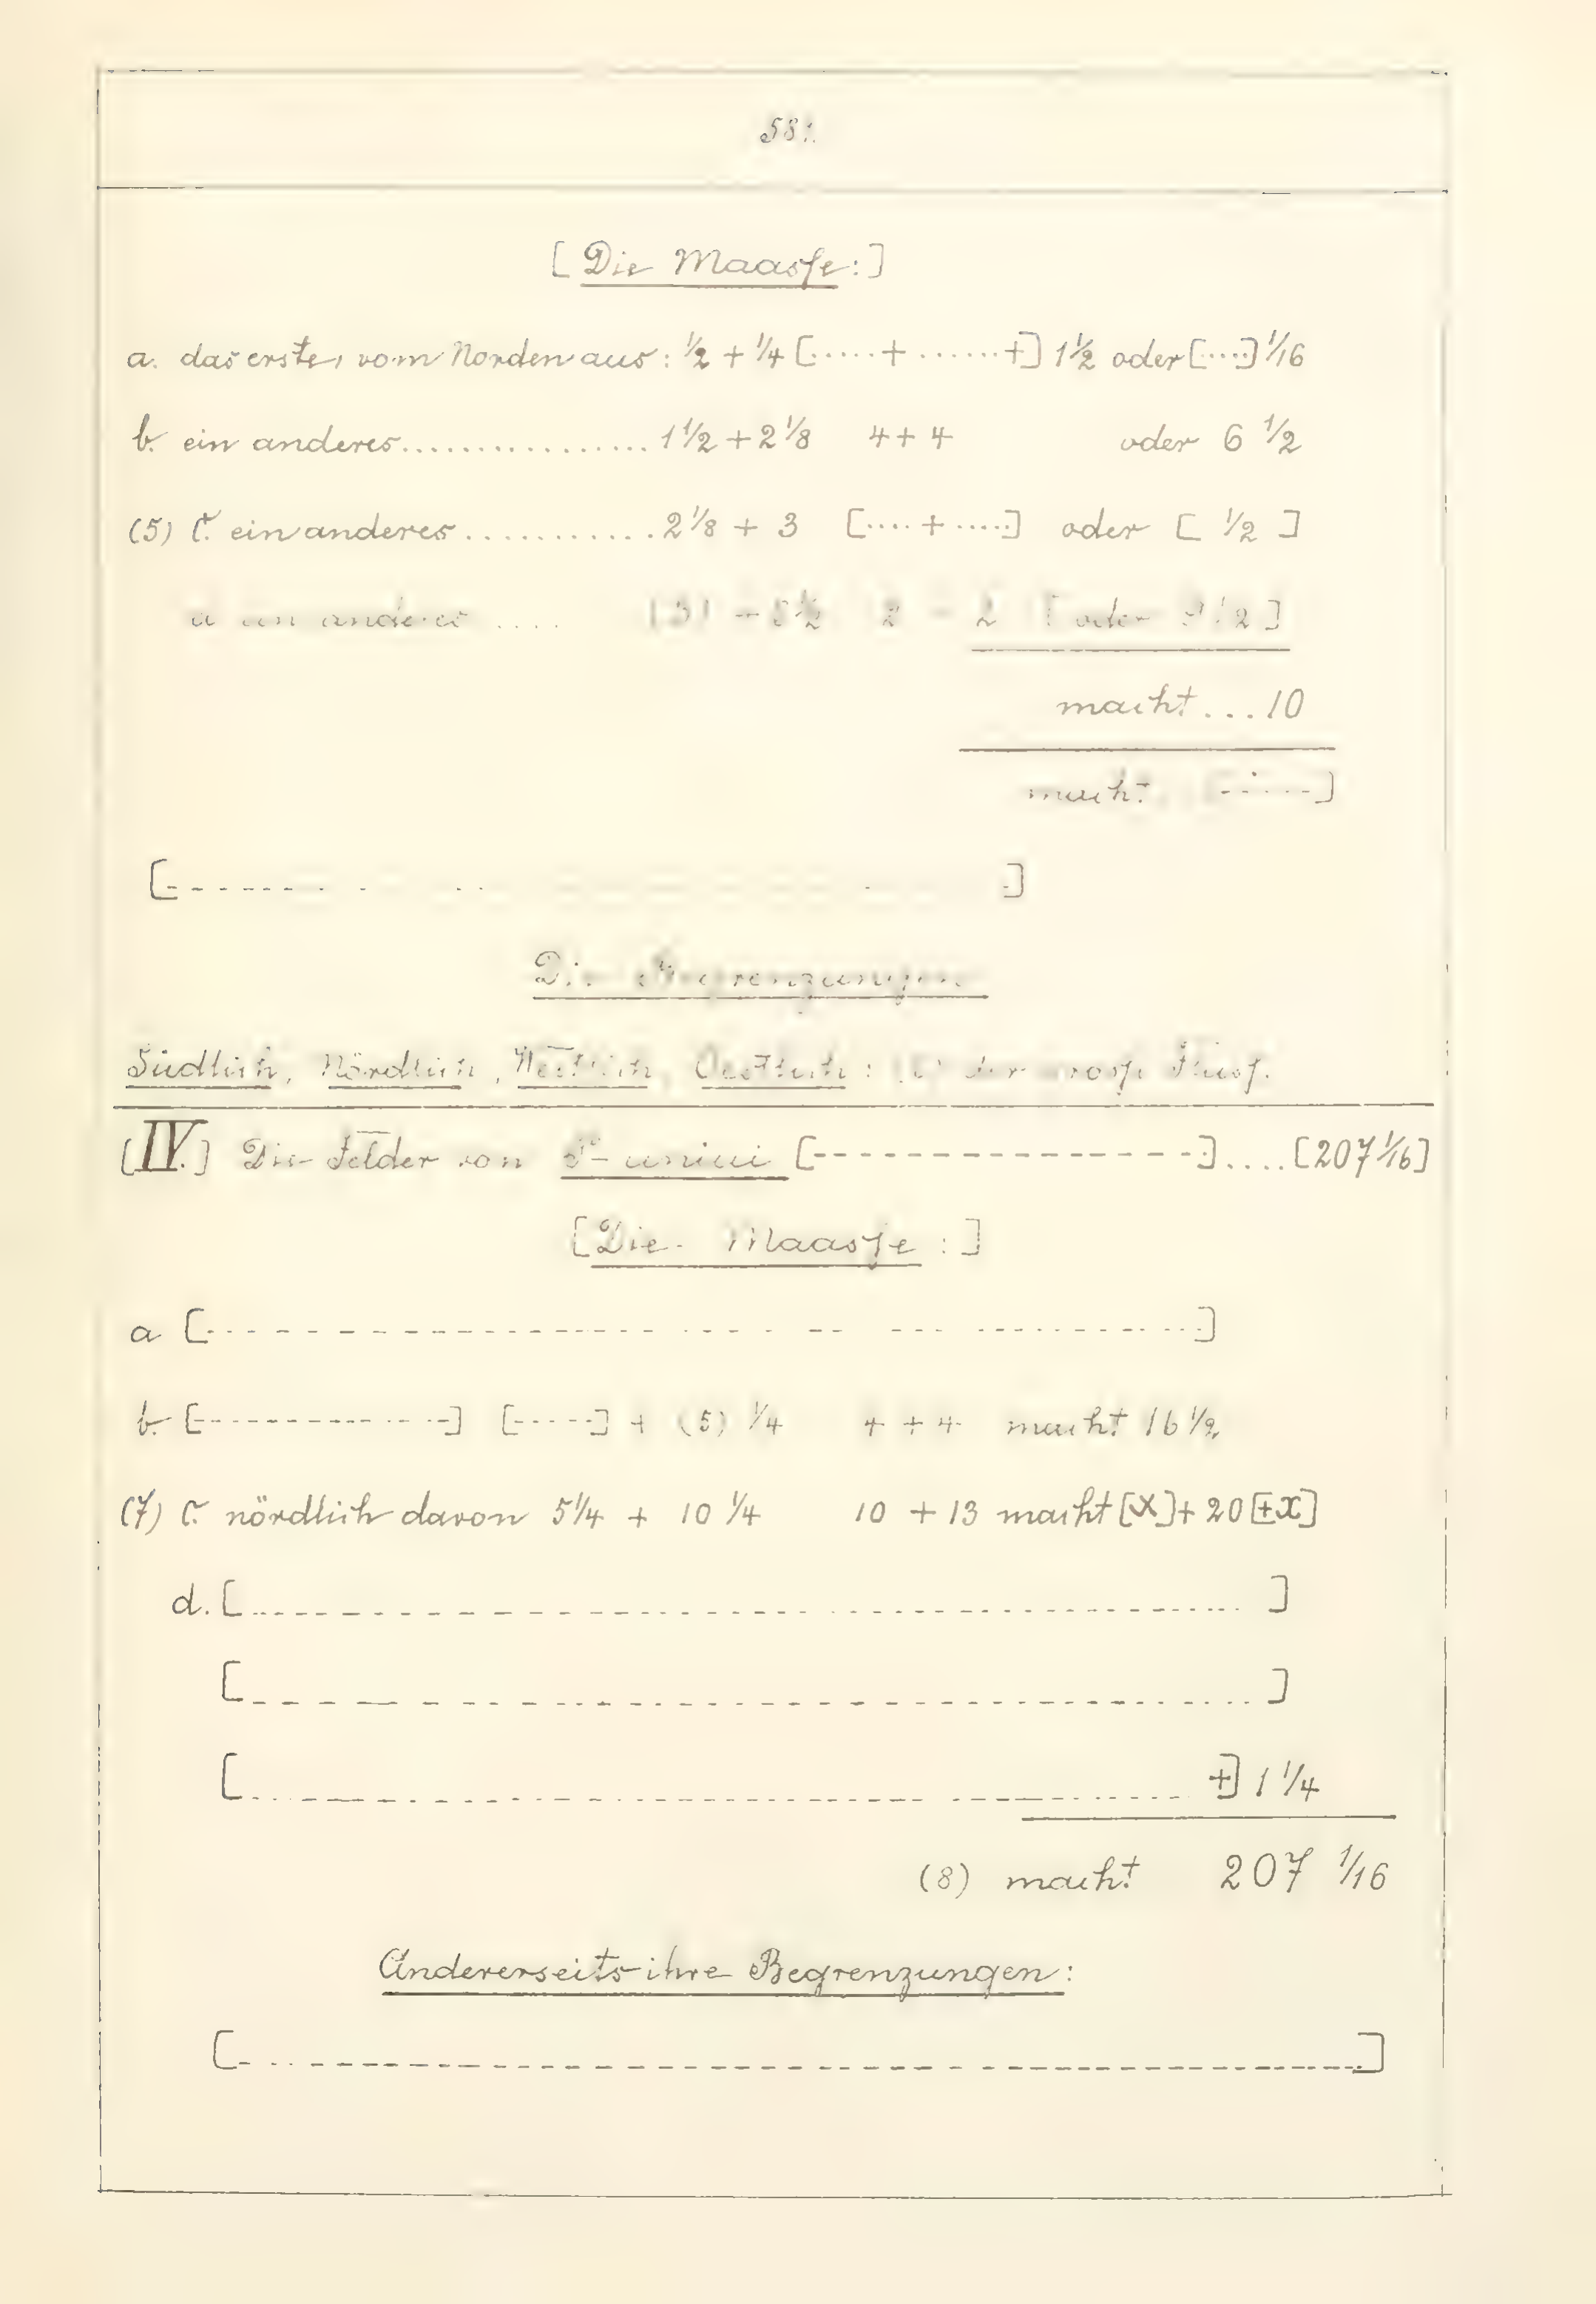 58.
[Die Maasse:]
a. das erste, vom Norden aus: ½ + ¼ [.....+ ......+] 1½ oder [....] 1/16
b. ein anderes................ 1½ + 2⅛ 4 + 4 oder 6 ½
(5) c. ein anderes............ 2⅛ + 3 [.... + .....] oder [ ½ ]
ein anderes .... 2 2 [oder
macht ... 10
macht [------]
[------------------------]
Die Begrenzungen
Südlich, Nördlich, Westlich, Oestlich: der grosse Fluss.
[IV.] Die Felder von [-----------------].... [207 1/16]
[Die Maasse:]
a [------------------------]
b. [--------------] [-----] + (5) ¼ 4 + 4 macht 16 ½
(7) c. nördlich davon 5¼ + 10 ¼ 10 + 13 macht [x] + 20 [+x]
d. [------------------------]
[------------------------]
[------------------------+] 1 ¼
(8) macht 207 1/16
Andererseits ihre Begrenzungen:
[------------------------]